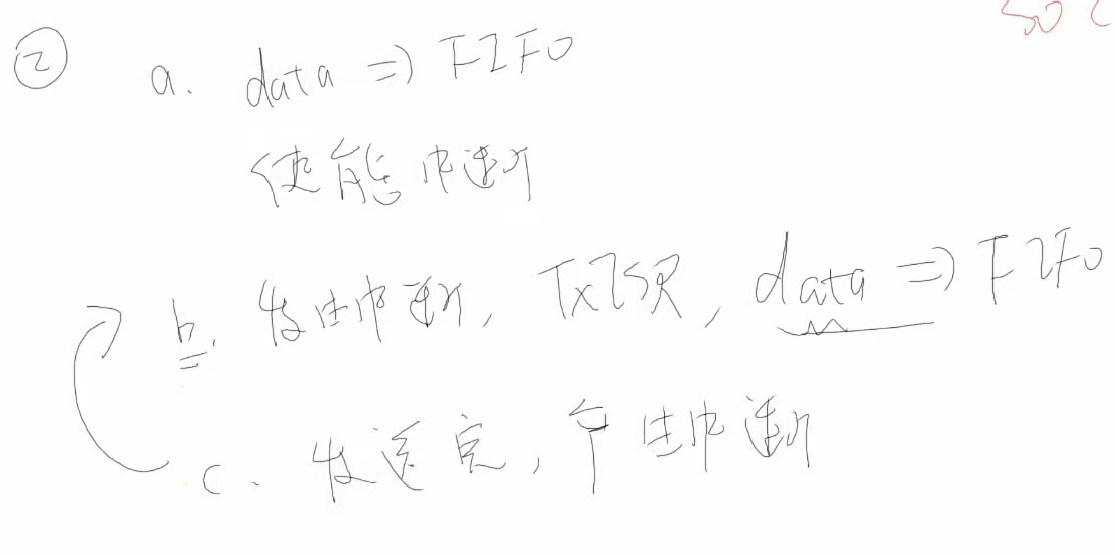 ② a. data => FIFO
使能中断
b. 发生中断, TxISR, data => FIFO
c. 发送完, 产生中断